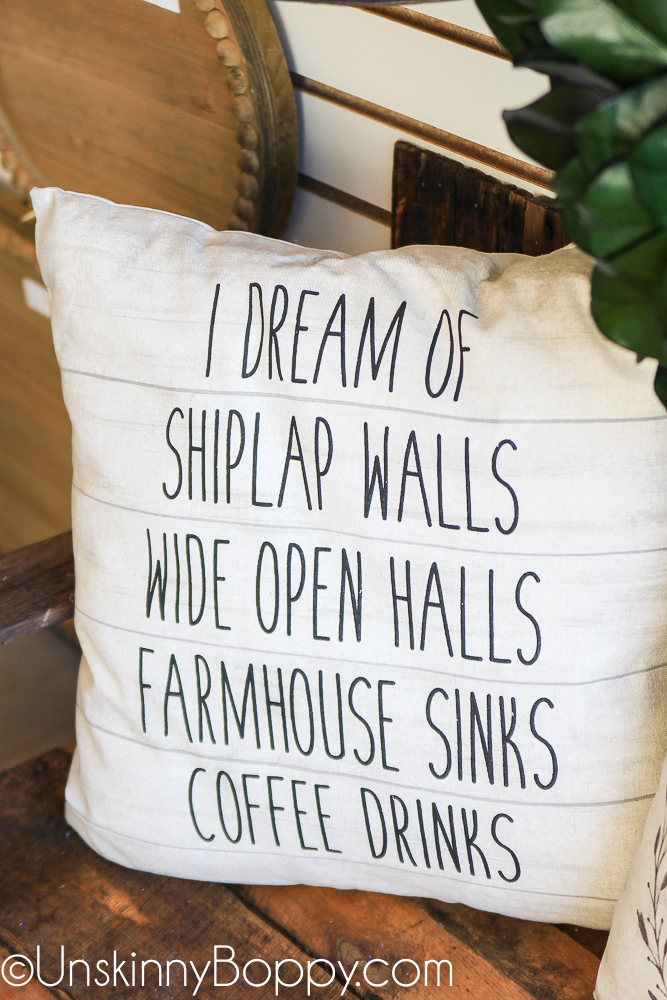 I DREAM OF
SHIPLAP WALLS
WIDE OPEN HALLS
FARMHOUSE SINKS
COFFEE DRINKS
©UnskinnyBoppy.com